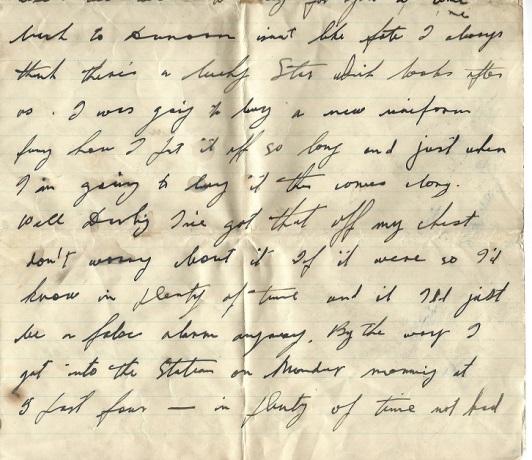 me
back to Dunoon isn't like fate I always
think there's a lucky Star which looks after
us. I was going to buy a new uniform
funy how I put it off so long and just when
I'm going to buy it this comes along.
Well I've got that off my chest
don't worry bout it If it were so I'd
know in plenty of time and it I'll just
be a false alarm anyway. By the way I
got into the Station on Monday morning at
5 past four — in plenty of time not bad